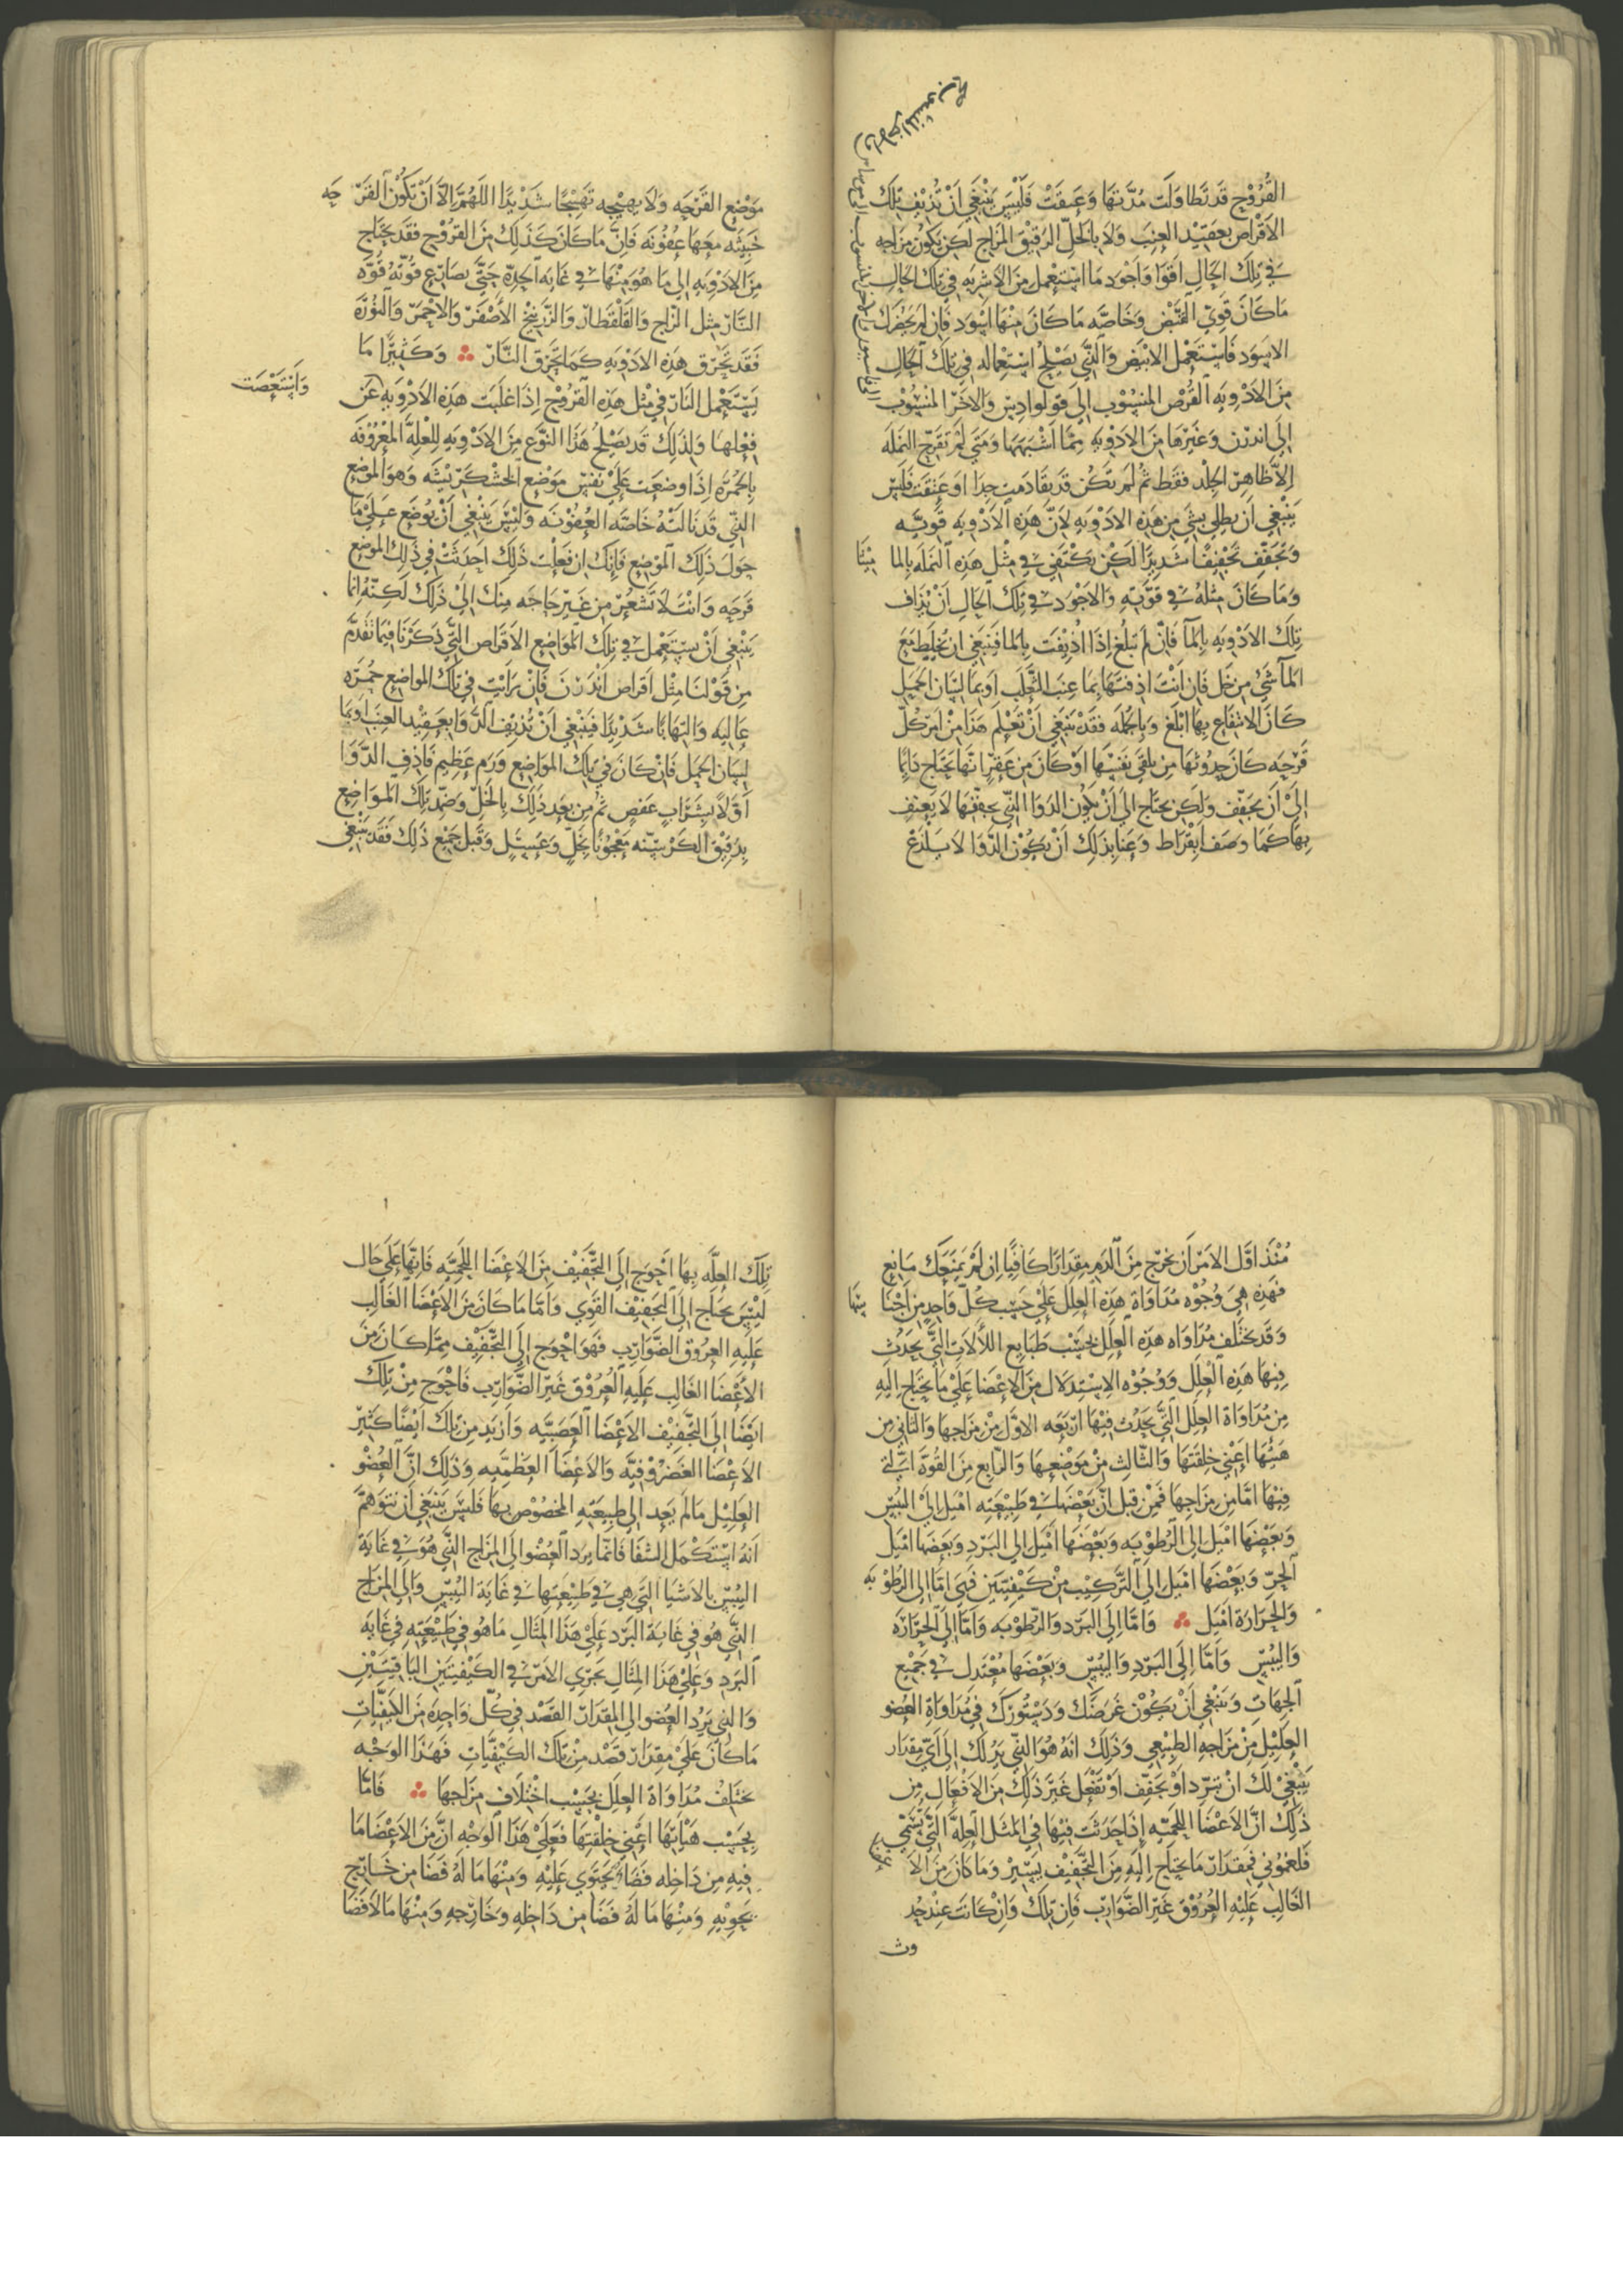 القُرُوْح قَد تَطاوَلَت مُدَّتهَا وَعَتِقَتْ فَلَيْسَ يَنْبَغِي أَنْ تُذِيْف تِلْكَ
الأقْرَاص بعَقِيْد العِنَب وَلَا بِالخَلِّ الرَقِيْقِ المزَاج لَكِن يَكُونُ مِزَاجِه
في تِلْكَ الحَالِ اقوَا وَاجْوَد مَا اسْتُعْمِل مِنَ الاَشْرِبَهِ فِي تِلْكَ الحَالِ
مَا كَانَ قَوِيّ القَبْضِ وَخَاصَّه مَا كَانَ مِنْهَا اسْوَد فَإن لَمْ يَحْضُرك
الاسْوَد فَاسْتَعْمِل الابْيَض وَالَّذِي يَصْلُحُ اسْتِعْمَالُه فِي تِلْكَ الحَالِ
مِنَ الاَدْوِيَهِ القُرْص المنْسُوْب إلَى فولوادِيس وَالاخَر المَنْسُوْب
إلَى اندرن وَغَيْرهَا مِنَ الادْوِيَهِ مِمَّا اَشْبَهَهَا وَمَتَي لَمْ تَقَرَّح النَمِلَه
إلاَّ ظَاهِر الجِلْد فَقَط ثُمْ لَمْ تَكُنْ قَد بقَا دَمَت جِدَا اوَ عَتِقَتْ فَلَيْسَ
يَنْبَغِي أنْ يطلي بِشَيْ مِن هَذِهِ الادْوِيَهِ لاَنَّ هَذِه الادْوِيَهِ قَوِيَّه
وَتُجَفِّف تَجْفِيْفًا شَدِيْدًا لَكِن يَكْتَفِي في مِثْل هَذِهِ النَمْلَه بِالمَا مِيْثَا
وَمَا كَانَ مِثْلُه في قوَّتِهِ وَالاجْوَد في تِلْكَ الحَالِ أنْ يُذَاف
تِلْكَ الادْوِيَه بِالمَآ فَإنْ لَم تَبْلُغ إذَا اُذِيْفَت بِالمَا فَيَنْبَغِي ان يُخْلَط مَعَ
المَآ شَئُ مِن خَل فَان أنْتَ اذفتهَا بِمَا عِنَب الثَّعْلَب أوبِمَا لِسَان الحَمَل
كَانَ الانتِفَاع بِهَا ابْلَغ وَبِالجُمْلَه فَقَدْ يَنْبَغِي أنْ تَعْلَم هَذَا مِنْ امَر كُلّ
قَرْحَه كَانَ حِدُوْثهَا مِن تلقَي نَفْسِهَا اوْ كَانَ مِن عَقْر انهَا تَحتَاج دَائِمًا
إلَيْ أنْ تُجَفَّف وَلَكِن تَحتَاج إلَي أنْ يَكُون الدَوَا الَّذِي يجَفّفهَا لَا يَعْنِف
بِهَا كَمَا وصَفَ ابُقْرَاط وَعَنَا بِذَلِكَ أنْ يَكُوْن الدَّوَا لَا يَلْذَعْ
مَوْضِع القَرْحَه وَلَا يهيْجه تَهْيِيْجًا شَدِيْدًا اللَهُمَّ إلاَّ أنْ تَكُوْن القَرْ حَه
خَبِيثَه مَعَهَا عُفُوْنَه فَإنَّ مَا كَانَ كَذَلِكَ مِنَ القرُوْح فقَد يَحْتَاج
مِنَ الادْوِيَه إلى مَا هُوَ مِنْهَا في غَايه الحِدّه حَتَّي يصَارِع قُوّتُهُ قُوَّه
النَّار مِثل الزَاج وَالقَلْقَطَار وَالزَّرْنِيْخ الأصْفَر وَالاحْمَر وَالنُوْرَة
فَقَد تُحْرِق هَذِه الادْوِيَه كَمَا تُحْرِق النَّار وَكَثِيْرًا مَا
يُسْتَعْمَل النَّار في مِثْل هَذِهِ القُرُوْح إذَا غلَبَت هَذِهِ الادْوِيَهِ عَن
وَاسْتَعْصَت
فِعْلهَا وَلِذَلِكَ قَد يَصْلُحُ هَذَا النَّوْع مِنَ الادْوِيَهِ لِلْعِلَّة المَعْرُوْفَه
بِالحُمْرَه إذَا وضِعَت عَلَيْ نَفْسِ مَوْضِع الخُشْكَرِيْشَه وَهوَ المَوْضِع
الذِّي قَد نَالَتْهُ خَاصَّه العُفُوْنَه وَلَيْسَ يَنْبَغِي أنْ يُوْضَع عَلَيْ مَا
حَوْلَ ذَلِكَ المَوْضِع فَإنَّكَ ان فَعَلْت ذَلِكَ احدَثتْ فِي ذَلِك المَوضِع
قَرحَه وَانْتَ لَا تَشْعُرْ مِن غَيْرِ حَاجَه مِنك إلَيْ ذَلِكَ لَكِنّهُ انمَا
يَنْبَغِي أنْ يسْتَعْمل في تِلْكَ المَوَاضِع الاَقرَاص التَّي ذَكَرْنَا فِيْمَا تَقَدَّمَ
مِن قَوْلنَا مِثْل اقرَاص اندَرُن فَانْ رَاَيْت فِي تلْكَ المواضِع حُمْرَه
عَالِيَه وَالتِهَابًا شَدِيْدًا فَيَنْبَغِي أنْ تُذِيْف الدَّوَا بعَقِيْد العِنَب اوبِمَا
لِسَان الحَمَل فَانْ كَانَ في تِلْكَ المَوَاضِع وَرَم عَظِيْم فَاذِف الدَّوَا
اوَّلًا بِشَرَابٍ عَفصٍ ثُمْ مِن بَعْد ذَلِكَ بِالخَلِّ وَضَمِّد تِلْكَ المَوَاضِع
بِدَقِيْق الكَرْسِنَّه مَعْجُوْنًا بَخَلٍّ وَعَسَلٍ وَقَبل جَمِيْع ذَلِكَ فَقَد يَنْبَغِي
مُنْذ اوَّل الامْر أنْ تُخرِج مِنَ الدَّمِ مِقدَارًا كَافِيًا إن لَمْ يَمْنَعك مَانِع
فَهَذِهِ هِيَ وُجُوْه مُدَاوَاة هَذِهِ العِلَل عَلَيْ حَسَب كُلّ وَاحِدٍ مِن اجْنَا سِهَا
وَقَد تَختَلِف مُدَاوَاه هَذِه العِلَل بحَسَب طَبَايِع الألَاتِ التَّي يَحدُث
فِيْهَا هَذِهِ العِلَل وَوُجُوْه الاسْتِدلَال مِنَ الاعْضَا عَلَيْ مَا يَحْتَاج إلَيْهِ
مِن مُدَاوَاة العِلَل الَّتي يَحدُث فِيْهَا أرْبَعَه الاوَّل مِنْ مِزَاجهَا وَالثَاني مِن
هَيْئتهَا اعْنِي خِلْقَتهَا وَالثَّالِث مِنْ مَوْضِعِهَا وَالرّابِع مِنَ القُوَّة الّتي
فِيْهَا امَّا مِن مِزَاجِهَا فَمِنْ قِبَل أنَّ بَعْضَهَا في طَبِيْعَتِهِ امْيَل إلَيْ اليُبْس
وَبَعْضهَا امْيَل إلى الرُطُوْبَه وَبَعْضهَا أمْيَل إلى البَرْدِ وَبَعْضهَا امْيَل
الحَرّ وَبَعْضهَا امْيَل إلى التَّركِيْب مِنْ كَيْفِيَّتَيْنِ فَهَي امّا إلى الرَطُوْ بَه
وَالحَرَارَة امْيَل وَامَّا إلَى البَرْد والرُّطُوْبه وَامَّا إلى الحَرَارَه
وَاليُبْسِ وَامَّا إلَى البَرْدِ وَاليُبْسِ وَبَعْضهَا مُعْتَدِل في جَمِيْع
الجِهَاتِ وَيَنْبَغِي أنْ يَكُوْن غَرَضكَ وَدَسْتُوْركَ في مُدَاوَاة العُضو
العَلِيْل مِنْ مَزَاجهِ الطَبِيْعي وَذَلِكَ انّهُ هُوَ الذِّي يَدُ لك إلى أيّ مِقدَار
يَنْبَغِي لَكَ انْ تُبَرِّد اوْ تجَفِّف اوْ تفْعَل غَيْرَ ذَلِكَ مِنَ الاَفْعَال مِن
ذَلِكَ انَّ الاَعْضَا اللحمّيه إذَا حَدَثَت فِيْهَا في المَثَل العِلّة الَّتي تُسَمَّي
فَلغمُوْني فَمِقدَار مَا يَحتَاج إلَيْهِ مِنَ التَّجْفِيْف يَسِيْر وَمَا كَانَ مِنَ الاَ عضا
الغَالِب عَلَيْهِ العُرُوْق غَيْر الضَّوَارِب فَانّ تِلْكَ وَانْ كَانَت عِنْد حُد
وث
تِلْكَ العِلَّه بِهَا احْوَج إلَى التَّجْفِيْف مِنَ الاعْضَا اللَحمِيَّه فَانّهَا عَلَى حَال
لَيْسَ تَحْتَاج إلَى التَّجفِيْف القَوِي وَامَّا مَا كَانَ مِنَ الاَعْضَا الغَالِب
عَلَيهِ العرُوْق الضَّوَارِب فَهوَ احْوَج إلَى التَّجْفِيْف مِمَّا كَانَ مِنَ
الاَعْضَا الغَالِب عَلَيهِ العُرُوْق غَيْر الضَّوَارِب فَاحْوَج مِنْ تِلْكَ
ايْضًا إلَى التَّجْفِيْف الاَعْضَا العَصَبِيَّه وَازْيَد مِن تِلْكَ ايْضًا كَثِيْر
الاعْضَا الغَضْرُوْفِيَّه وَالاعْضَا العَظمِيَّه وَذَلِكَ انَّ العُضْو
العَلِيْل مَا لَم يَعُد إلَى طَبِيْعَتِهِ المخصُوْصِ بهَا فَليْسَ يَنْبَغِي أنْ تتَوَهَّمَ
انّهُ اسْتَكْمَل الشّفَا فَانّمَا يرد العُضْو إلَى المِزَاج الذِّي هُوَ في غَايَة
اليُبْس بِالاشْيَا التَّي هِي في طَبِيْعَتِهَا في غَايَة اليُبْسِ وَإلَى المِزَاج
الذِّي هُوَ في غَايَة البَرْد عَلَيْ هَذَا المِثَال مَا هُوَ في طَبِيْعَتِهِ في غَايَه
البَرَد وَعَلَيْ هَذَا المِثَال يَجْرِي الامْر في الكَيْفِيَّتَيْنِ البَاقِيَتَيْنِ
وَالذي يَرُد العُضو إلى المِقدَار القَصْد في كُلّ وَاحِدَه مِنَ الكَيْفِيَّاتِ
مَا كَانَ عَلَيْ مِقدَار قَصْد مِنْ تِلْكَ الكَيْفِيَّاتِ فَهَذَا الوَجْه
تَختَلِفُ مُدَاوَاة العِلَل بحَسَب اخْتِلَافِ مِزَاجهَا فَامَّا
بِحَسَب هَيْأتهَا اعْنِي خِلقَتهَا فَعَلَيْ هَذَا الوَجْه انَّ مِنَ الاَعْضَا مَا
فِيهِ مِن دَاخِلِه فَضَا يَحْتَوِي عَلَيْهِ وَمِنْهَا مَا لَهُ فَضَا مِن خَارِج
يَحوِيْهِ وَمِنْهَا مَا لَهُ فَضَا مِن دَاخِلِهِ وَخَارِجهِ وَمِنْهَا مَا لَا فَضَا